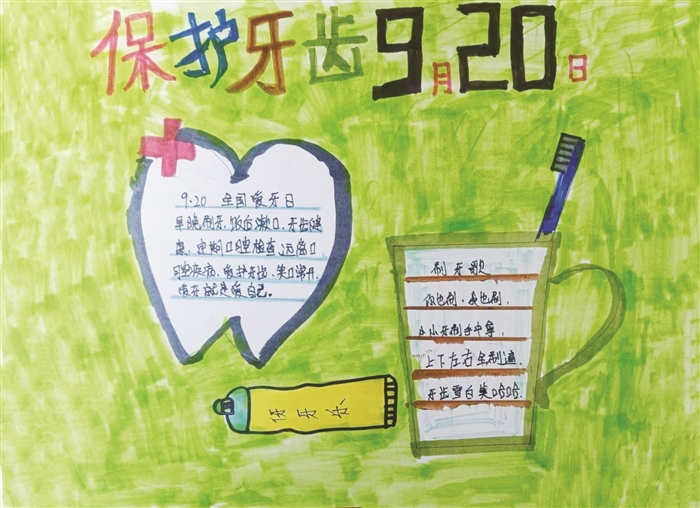 保护牙齿9月20日
9.20 全国爱牙日
早晚刷牙,饭后漱口,牙齿健
康,定期口腔检查,远离口
腔疾病,爱护牙齿,笑口常开,
爱牙就是爱自己。
刷牙歌
你也刷,我也刷,
小牙刷手中拿,
上下左右全刷遍,
牙齿雪白笑哈哈.